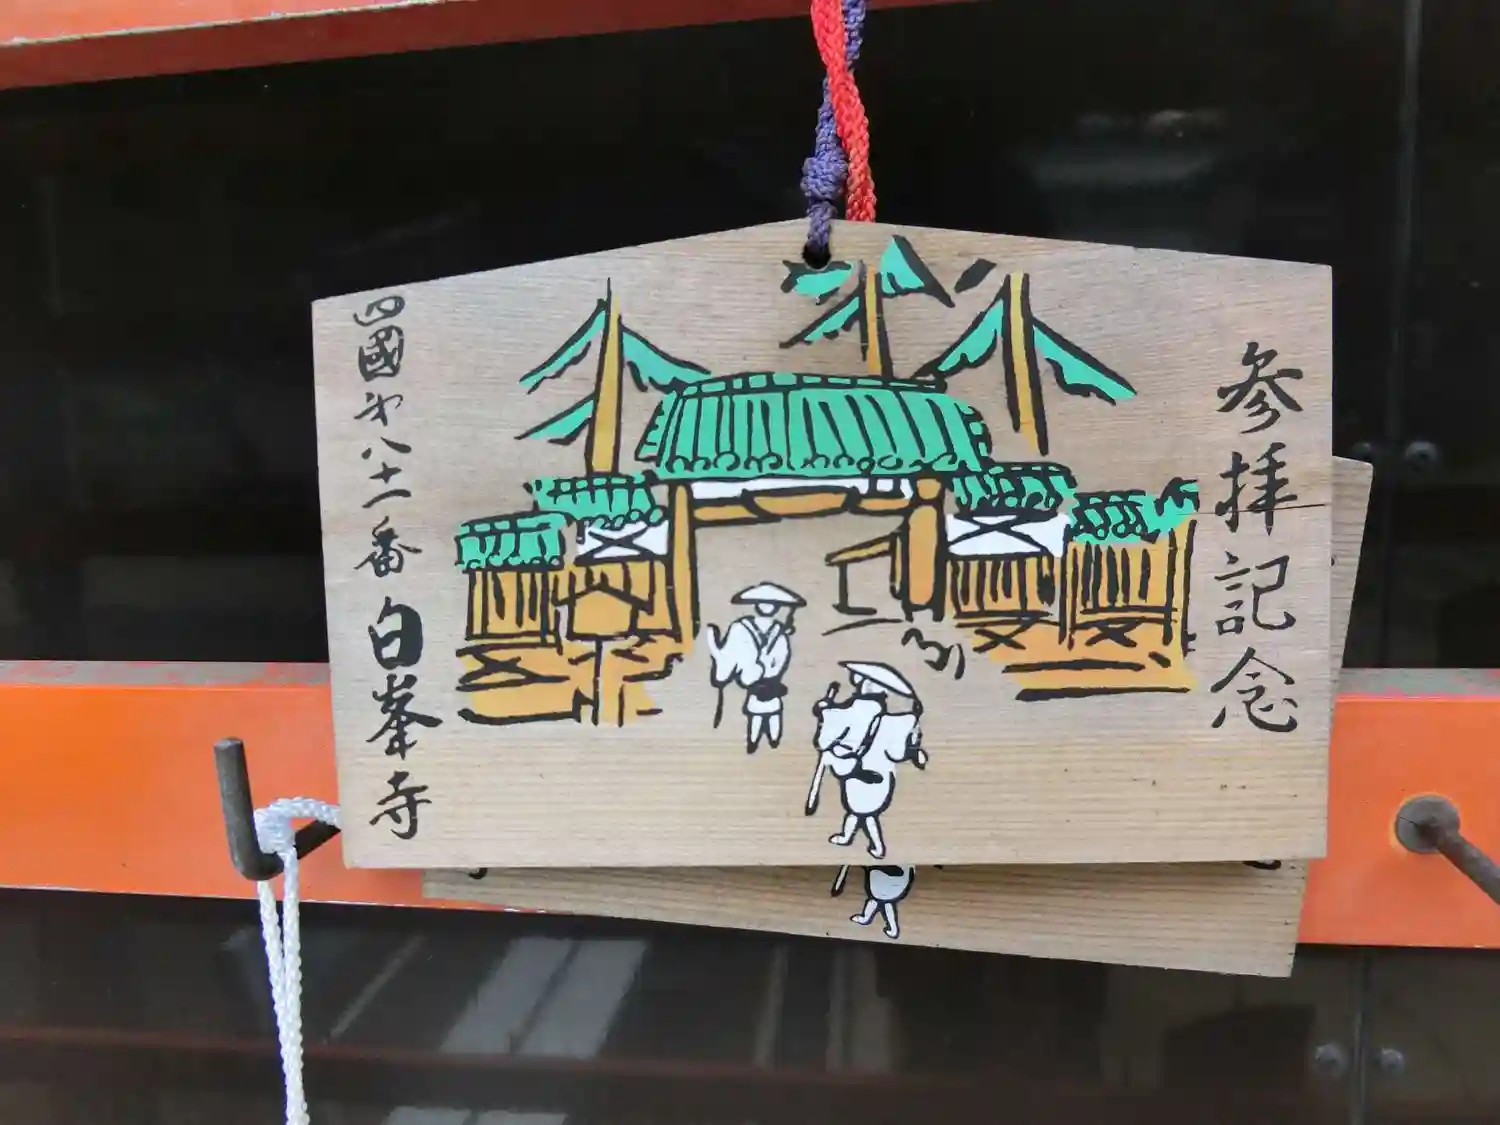 参拝記念
四國第八十一番白峯寺